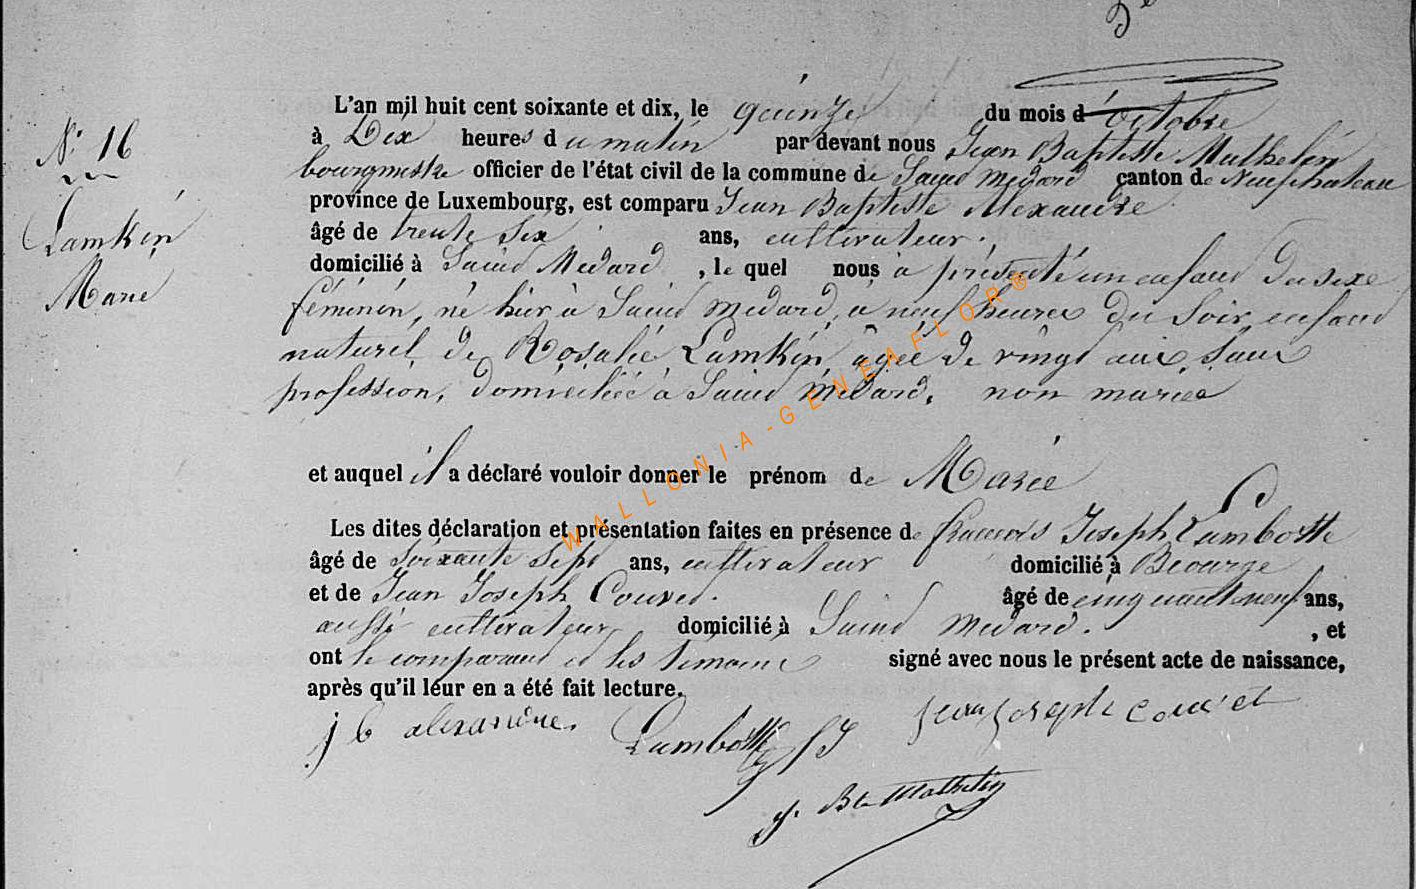 N° 16
Lamkin
Marie
L'an mil huit cent soixante et dix, le quinze du mois d'octobre
à Dix heures du matin par devant nous Jean Baptiste Mathelin
bourgmestre officier de l'état civil de la commune de Saint Médard canton de Neufchateau
province de Luxembourg, est comparu Jean Baptiste Alexandre
âgé de trente six ans, cultivateur.
domicilié à Saint Médard, le quel nous a présenté un enfant du sexe
féminin, né hier à Saint Médard, à neuf heures du soir, enfant
naturel de Rosalie Lamkin, âgée de vingt ans, sans
profession, domiciliée à Saint Médard, non mariée
et auquel il a déclaré vouloir donner le prénom de Marie
Les dites déclaration et présentation faites en présence de françois Joseph Lambotte
âgé de soixante sept ans, cultivateur domicilié à
et de Jean Joseph Couset. âgé de cinquante neuf ans,
aussi cultivateur domicilié à Saint Médard. , et
ont le comparant et les témoins signé avec nous le présent acte de naissance,
après qu'il leur en a été fait lecture.
j b alexandre.
Lambotte fJ
Jean Joseph
J. Bte Mathelin
WALLONIA-GENEAFLOR®